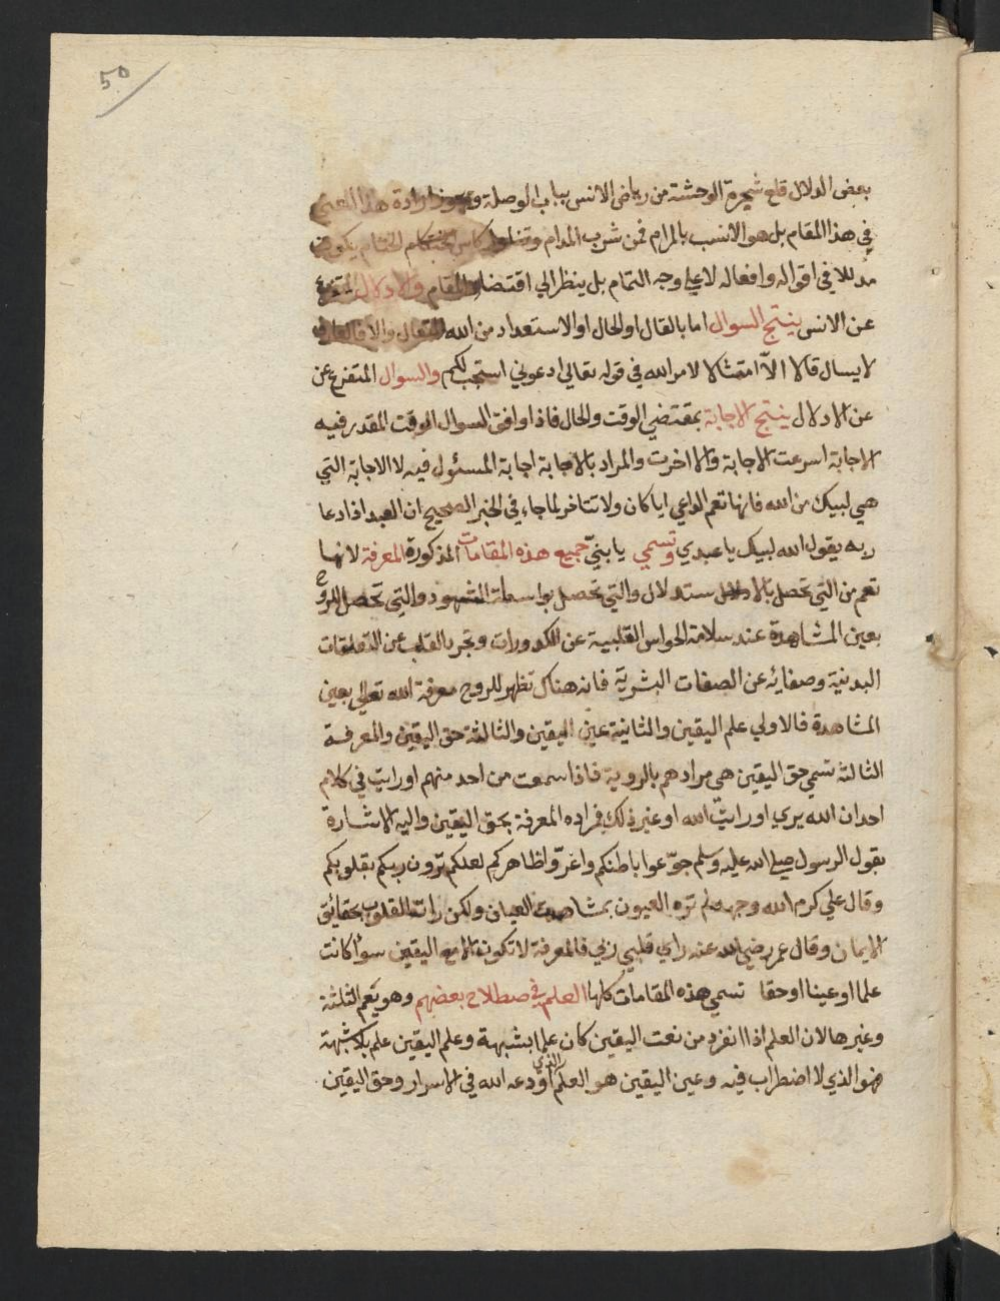 50
بعض الدلال قلع شجرة الوحشة من رياض الانس بباب الوصلة ويجوز ارادة هذا المعني
في هذا المقام بل هو الانسب بالمرام فمن شرب المدام وتناول كاس الختام يكون
مدللا في اقواله وافعاله لا علي وجه التمام بل ينظر الي اقتضاء المقام والادلال المتفرع
عن الانس ينتج السوال اما بالقال او الحال او الاستعداد من الله المتعال والا فالعارف
لا يسال قالا الا امتثالا لامر الله في قوله تعالي ادعوني استجب لكم والسوال المتفرع عن
عن الادلال ينتج الاجابة بمقتضي الوقت والحال فاذا وافق السوال الوقت المقدر فيه
الاجابة اسرعت الاجابة والا اخرت والمراد بالاجابة اجابة المسئول فيه لا الاجابة التي
هي لبيك من الله فانها تعم الداعي ايا كان ولا تتاخر لما جاء في الخبر الصحيح ان العبد اذا دعا
ربه يقول الله لبيك يا عبدي وتسمي يا بنيّ جميع هذه المقامات المذكورة المعرفة لانها
تعم من التي تحصل بالاستدلال والتي تحصل بواسطة الشهود والتي تحصل للروح
بعين المشاهدة عند سلامة الحواس القلبية عن الكدورات وتجرد القلب عن التعلقات
البدنية وصفايه عن الصفات البشرية فانه هناك تظهر للروح معرفة الله تعالي بعين
المشاهدة فالاولي علم اليقين والثانية عين اليقين والثالثة حق اليقين والمعرفة
الثالثة تسمي حق اليقين هي مرادهم بالروية فاذا سمعت من احد منهم او رايت في كلام
احد ان الله يري او رايت الله او غير ذلك فمراده المعرفة بحق اليقين واليه الاشارة
بقول الرسول صلي الله عليه وسلم جوّعوا باطنكم واعرّوا ظاهركم لعلكم ترون ربكم بقلوبكم
وقال علي كرم الله وجهه لم تره العيون بمشاهدة العيان ولكن راته القلوب بحقائق
الايمان وقال عمر رضي الله عنه راي قلبي ربي فالمعرفة لا تكون الا مع اليقين سوا كانت
علما او عينا او حقا تسمي هذه المقامات كلها العلم في صطلاح بعضهم وهو يعم الثلثة
وغيرها لان العلم اذا انفرد من نعت اليقين كان علما بشبهة وعلم اليقين علم بلا شبهة
فهو الذي لا اضطراب فيه وعين اليقين هو العلم الذي اودعه الله في الاسرار وحق اليقين